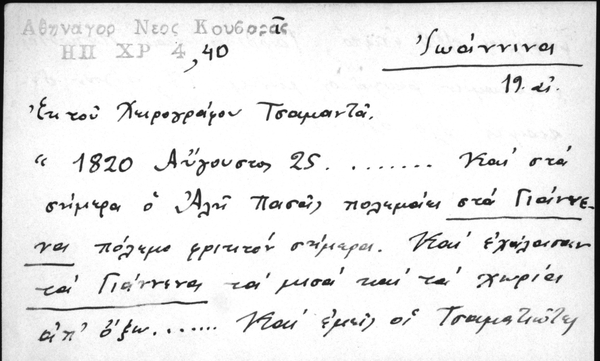 Αθηναγορ Νεος Κουβαρᾶς
ΗΠ ΧΡ 4, 40
Ἰωάννινα
19. αἰ.
Ἐκ τοῦ Χειρογράφου Τσαμαντᾶ.
" 1820 Αὔγουστος 25. ....... Καί στά
σήμερα ὁ Ἀλῆ Πασᾶς πολεμάει στά Γιάννε-
να πόλεμο φρικτόν σήμερα. Καί ἐχάλασαν
τά Γιάννενα τά μισά καί τά χωρία
ἀπ' ὄξω....... Καί ἐμεῖς οἱ Τσαματιῶτες